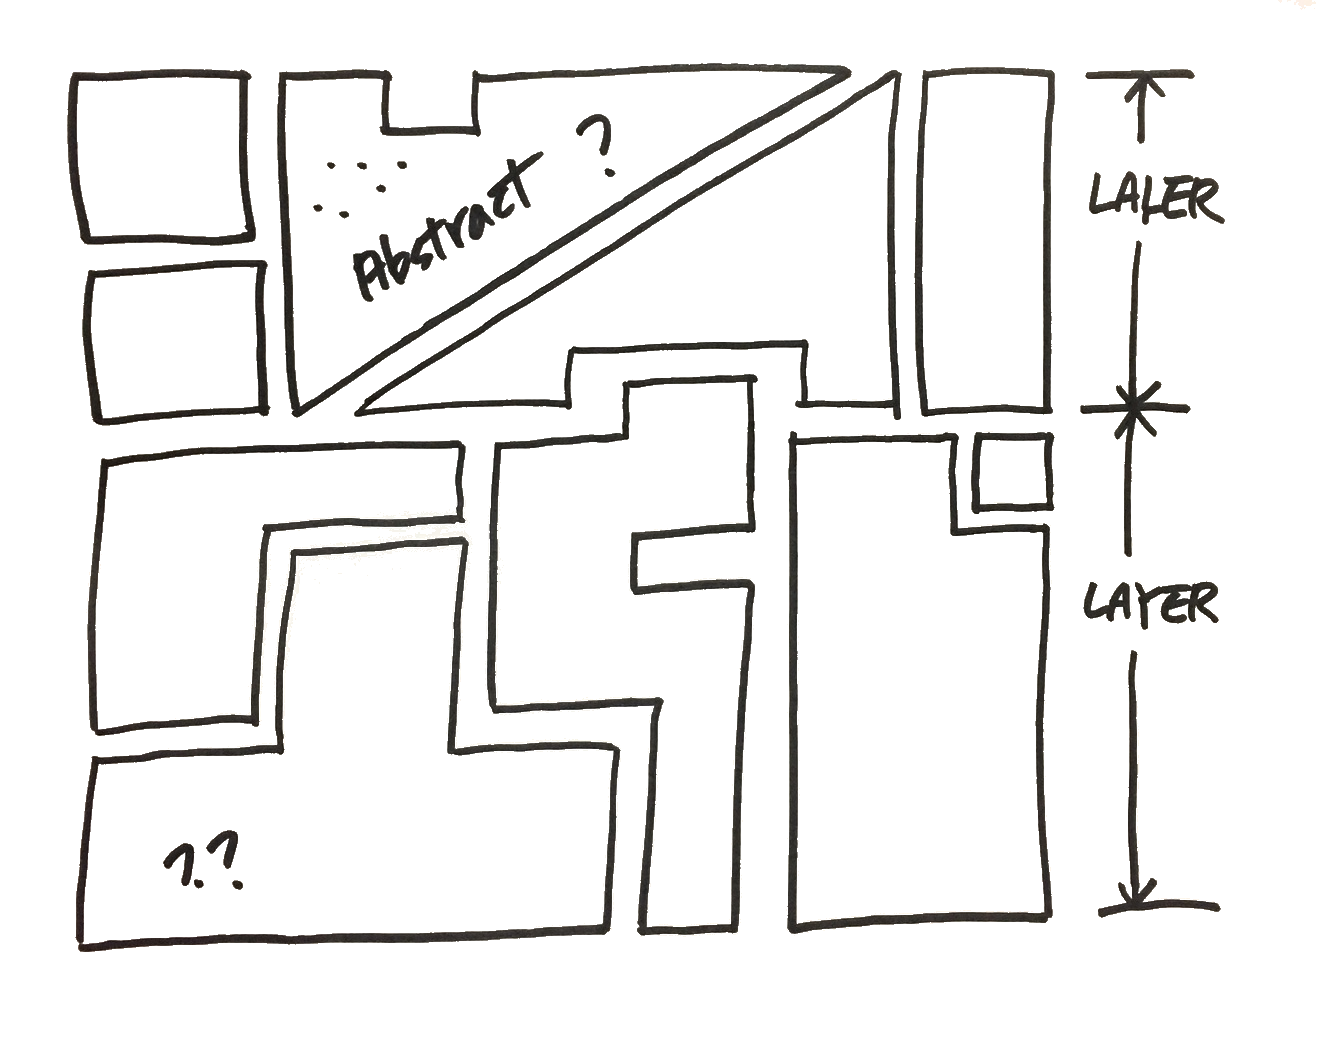 Abstract ?
LALER
LAYER
??